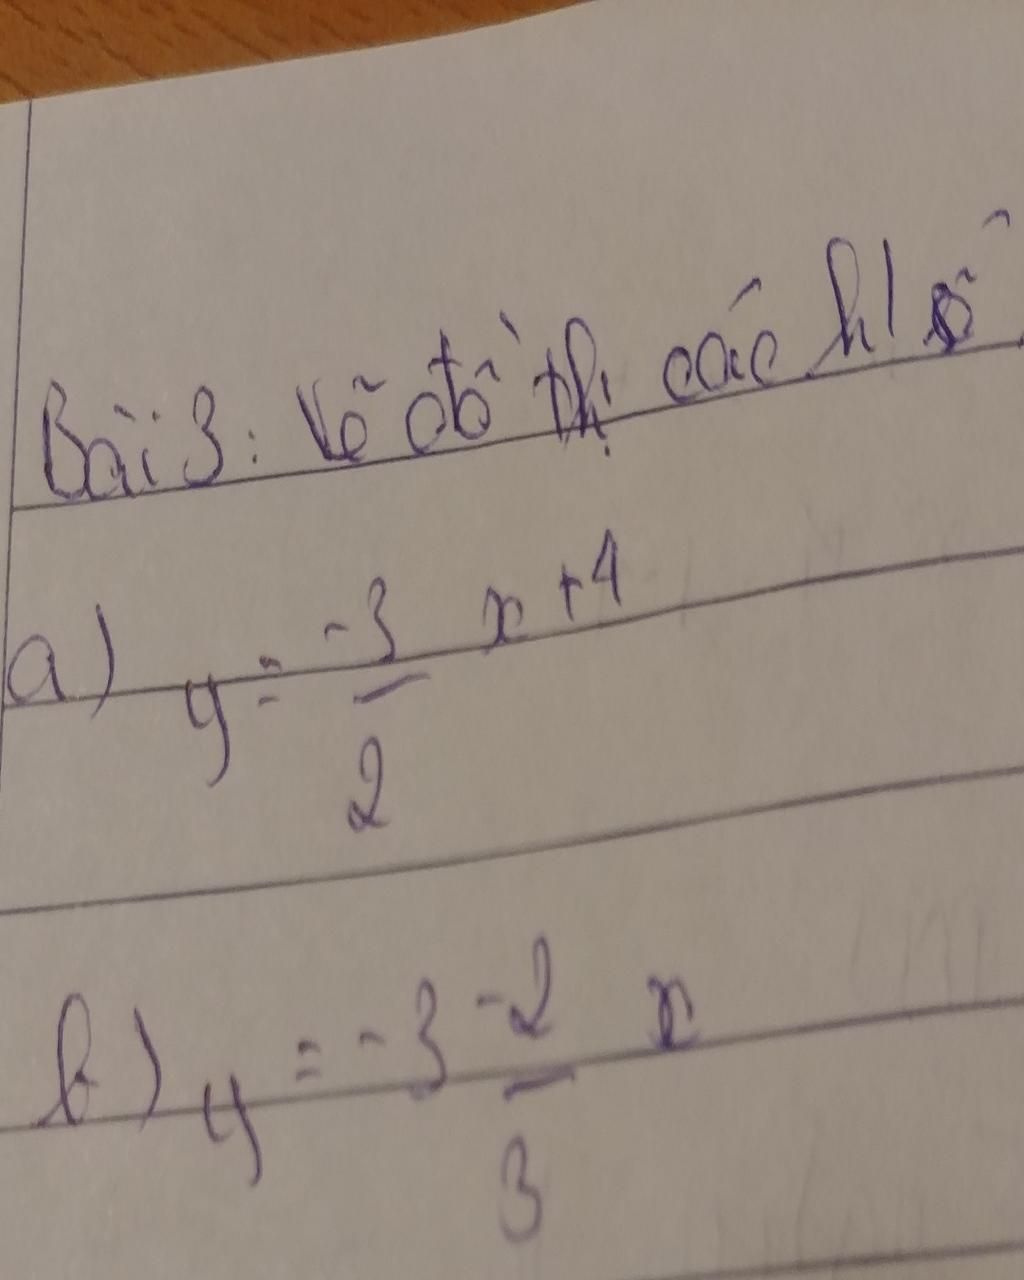 Bài 3: Vẽ đồ thị các h/ số
a) y = -3/2 x + 4
b) y = -3 -2/3 x